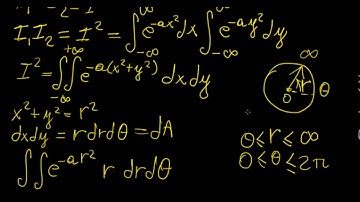 I₁I₂ = I² = ∫_{-∞}^{∞} e^{-ax²}dx ∫_{-∞}^{∞} e^{-ay²}dy
I² = ∬_{-∞}^{+∞} e^{-a(x²+y²)} dxdy
∞
r
θ
0
x² + y² = r²
dxdy = rdrdθ = dA
0 ≤ r ≤ ∞
0 ≤ θ ≤ 2π
∬ e^{-ar²} r drdθ